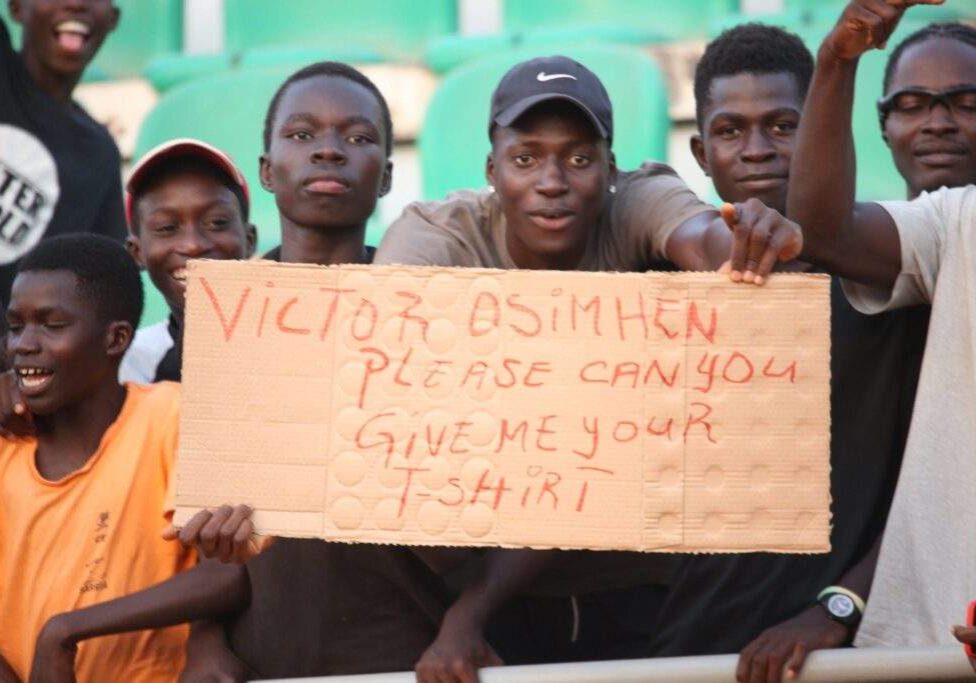 VICTOR OSIMHEN
PLEASE CAN YOU
GIVE ME YOUR
T-SHIRT